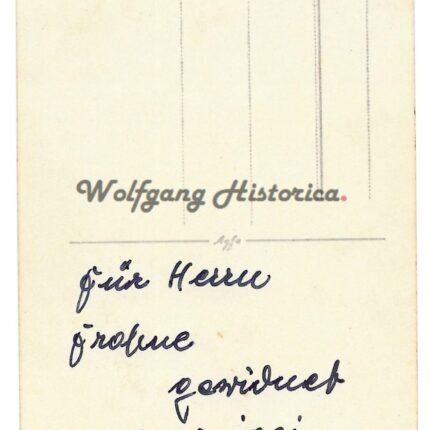 Wolfgang Historica.
Agfa
für Herrn
Frohne
gewidmet